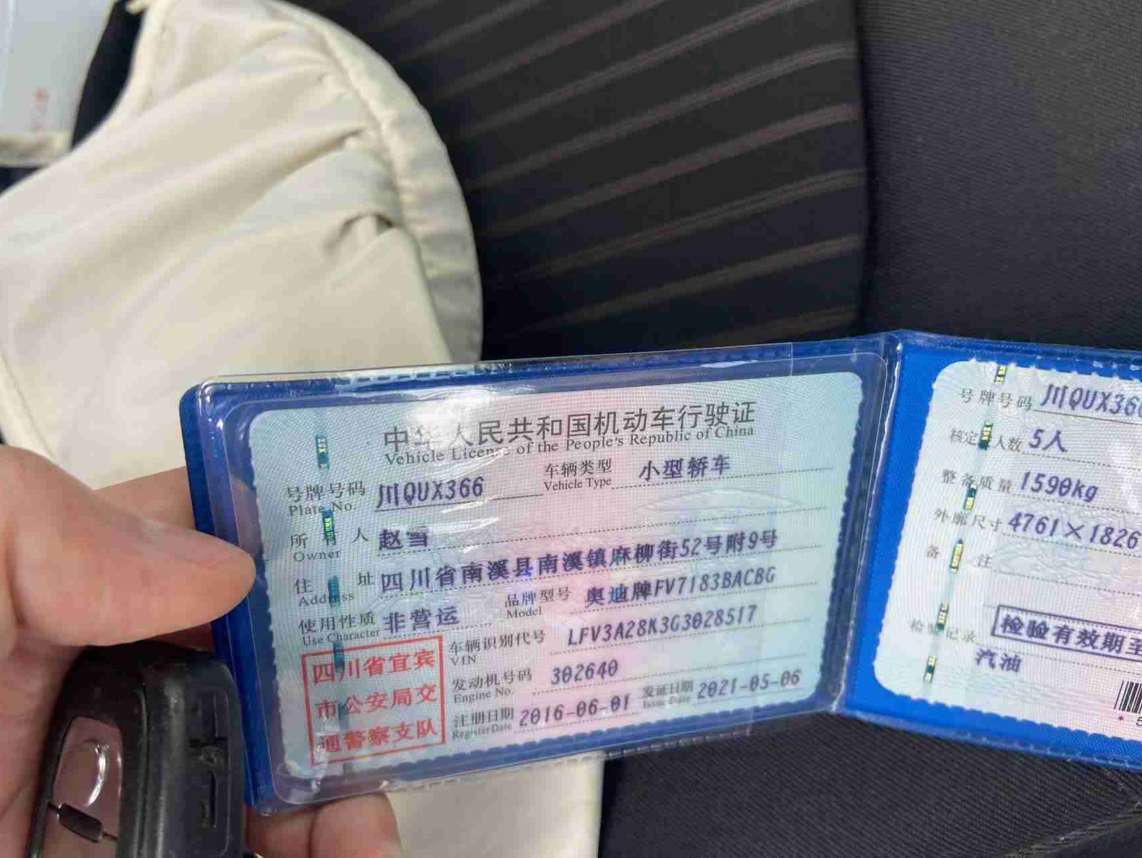 中华人民共和国机动车行驶证
Vehicle License of the People's Republic of China
号牌号码 川QUX366 车辆类型 小型轿车
Plate No. Vehicle Type
所有人 赵当
Owner
住址 四川省南溪县南溪镇麻柳街52号附9号
Address
使用性质 非营运 品牌型号 奥迪牌FV7183BACBG
Use Character Model
车辆识别代号 LFV3A28K3G3028517
VIN
发动机号码 302640
Engine No.
注册日期 2016-06-01 发证日期 2021-05-06
Register Date Issue Date
四川省宜宾
市公安局交
通警察支队
号牌号码 川QUX366
核定人数 5人
整备质量 1590kg
外廓尺寸 4761×1826
备注
检验记录 检验有效期至
汽油